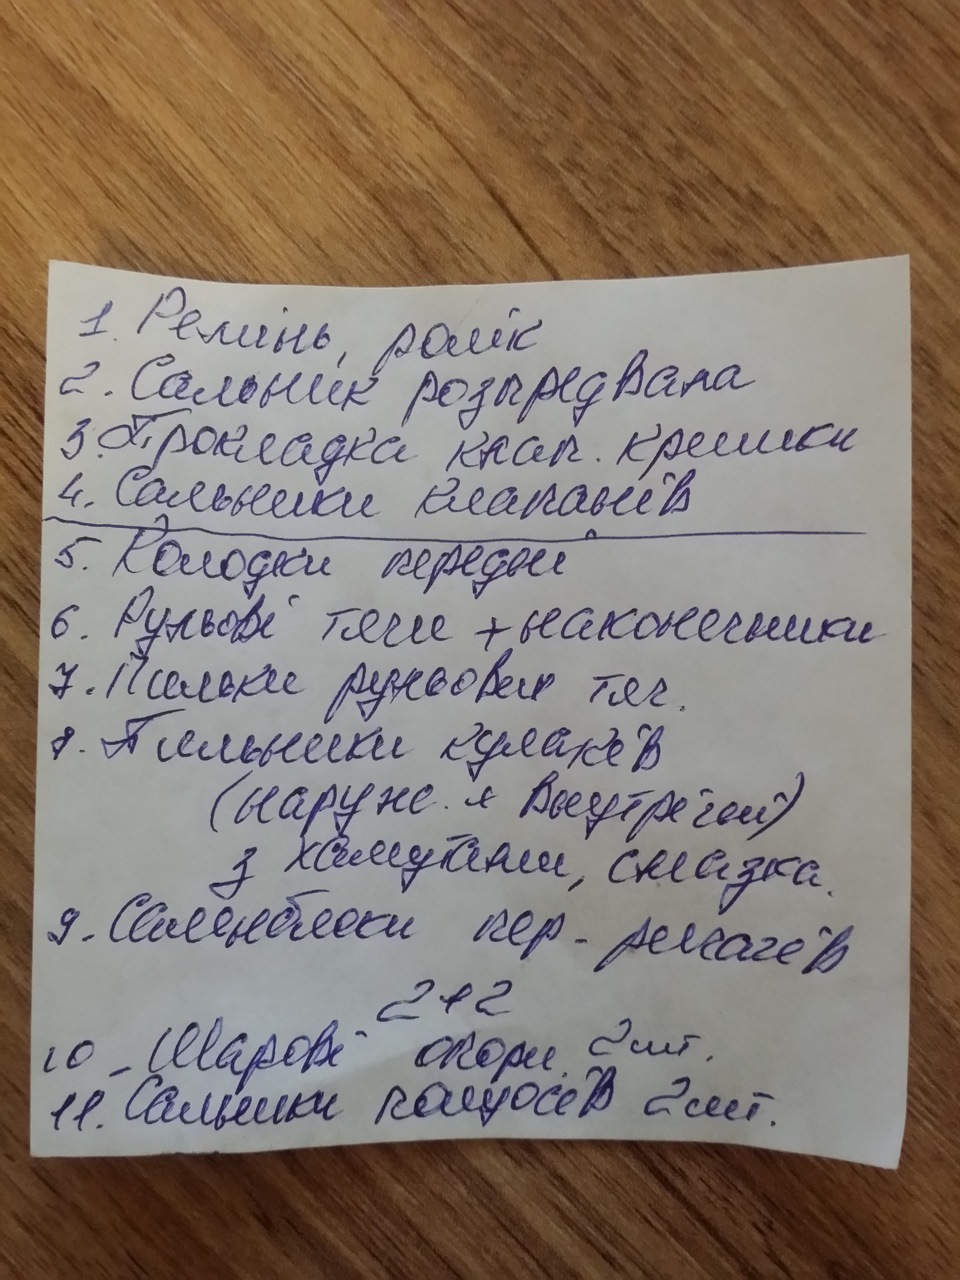 1. Ремінь, ролік
2. Сальник розпредвала
3. Прокладка клап. кришки
4. Сальники клапанів
5. Колодки передні
6. Рульові тяги + наконечники
7. Пильки рульових тяг.
8. Пильники кулаків
(наружн. + внутрічній)
з хамутами, смазка.
9. Саленблоки пер. ричагів
2+2
10 - Шарові опори 2 шт.
11. Сальники полуосів 2 шт.